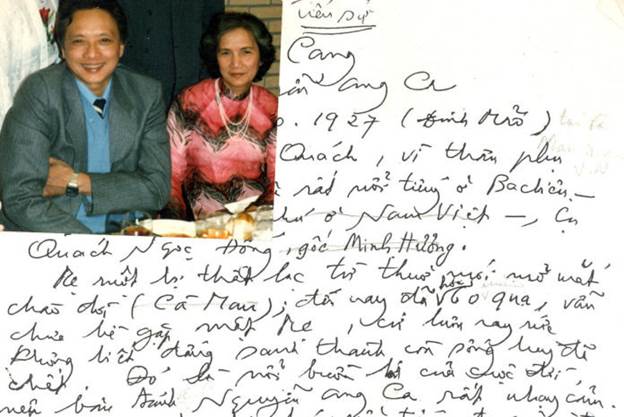 Tiểu Sử
Cang
ang Ca
. 1927 (Đinh Mão) tại
Quách, vì thân phụ
rất nổi tiếng ở Bạc Liêu –
ở Nam Việt –, Cụ
Quách Ngọc Đống, gốc Minh Hương.
Mẹ ruột bị thất lạc từ thuở mới mở mắt
chào đời (Cà Mau), đến nay đã hơn 60 qua, vẫn
chưa hề gặp mặt Mẹ, cứ luôn ray rức
không biết đấng sanh thành còn sống hay đã
chết. Đó là nỗi buồn của cuộc đời,
nên bút danh Nguyễn ang Ca